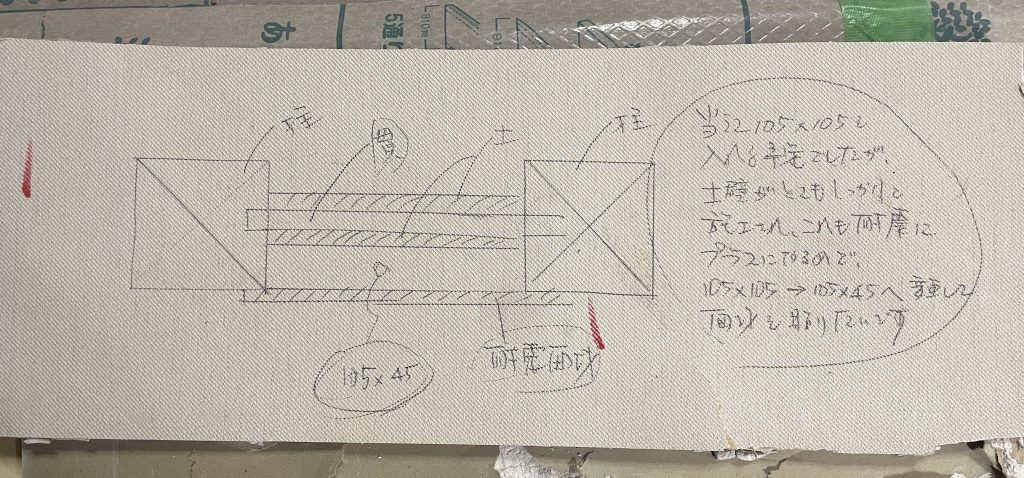 5通り
L910m
あ
柱
貫
土
柱
105×45
耐震面材
当初105×105を
入れる予定でしたが、
土壁がとてもしっかりと
施工され、これも耐震に
プラスになるので、
105×105→105×45へ変更して
面材を貼りたいです